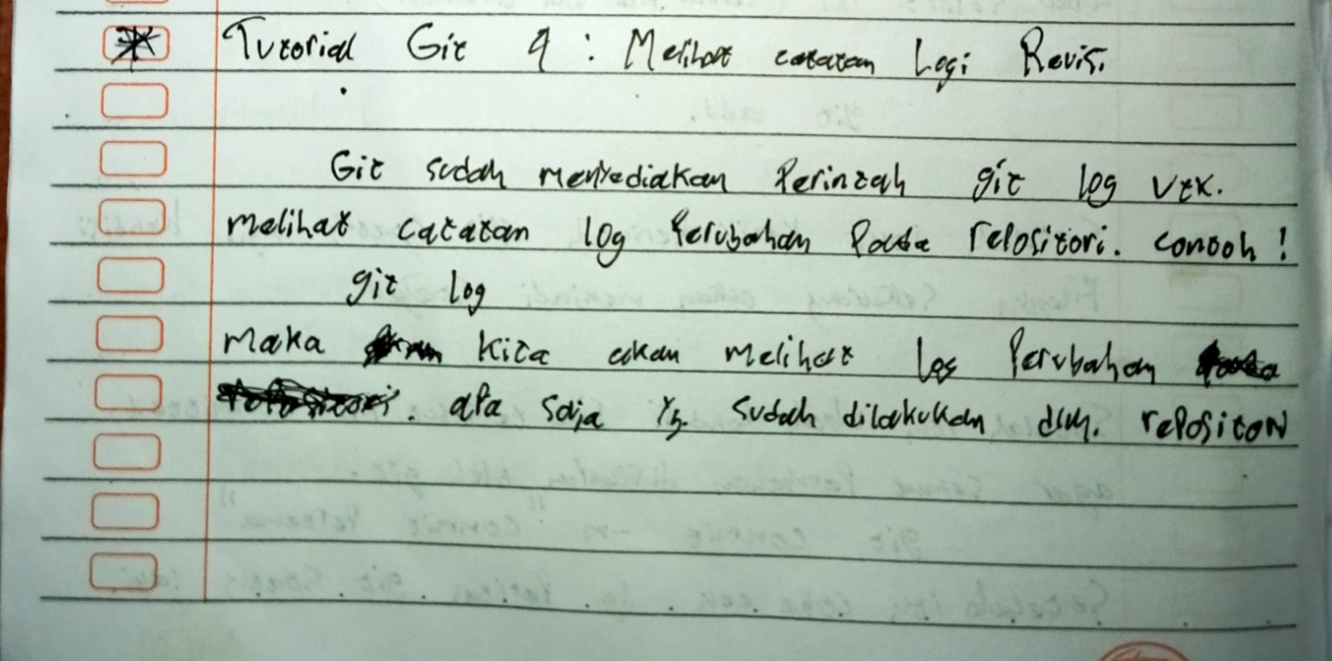 Tutorial Git 4 : Melihat catatan Logi Revisi
Git sudah menyediakan Perintah git log utk.
melihat catatan log Perubahan Pada repositori. contoh !
git log
maka kita akan melihat log Perubahan
apa saja yg. sudah dilakukan dlm. repositori